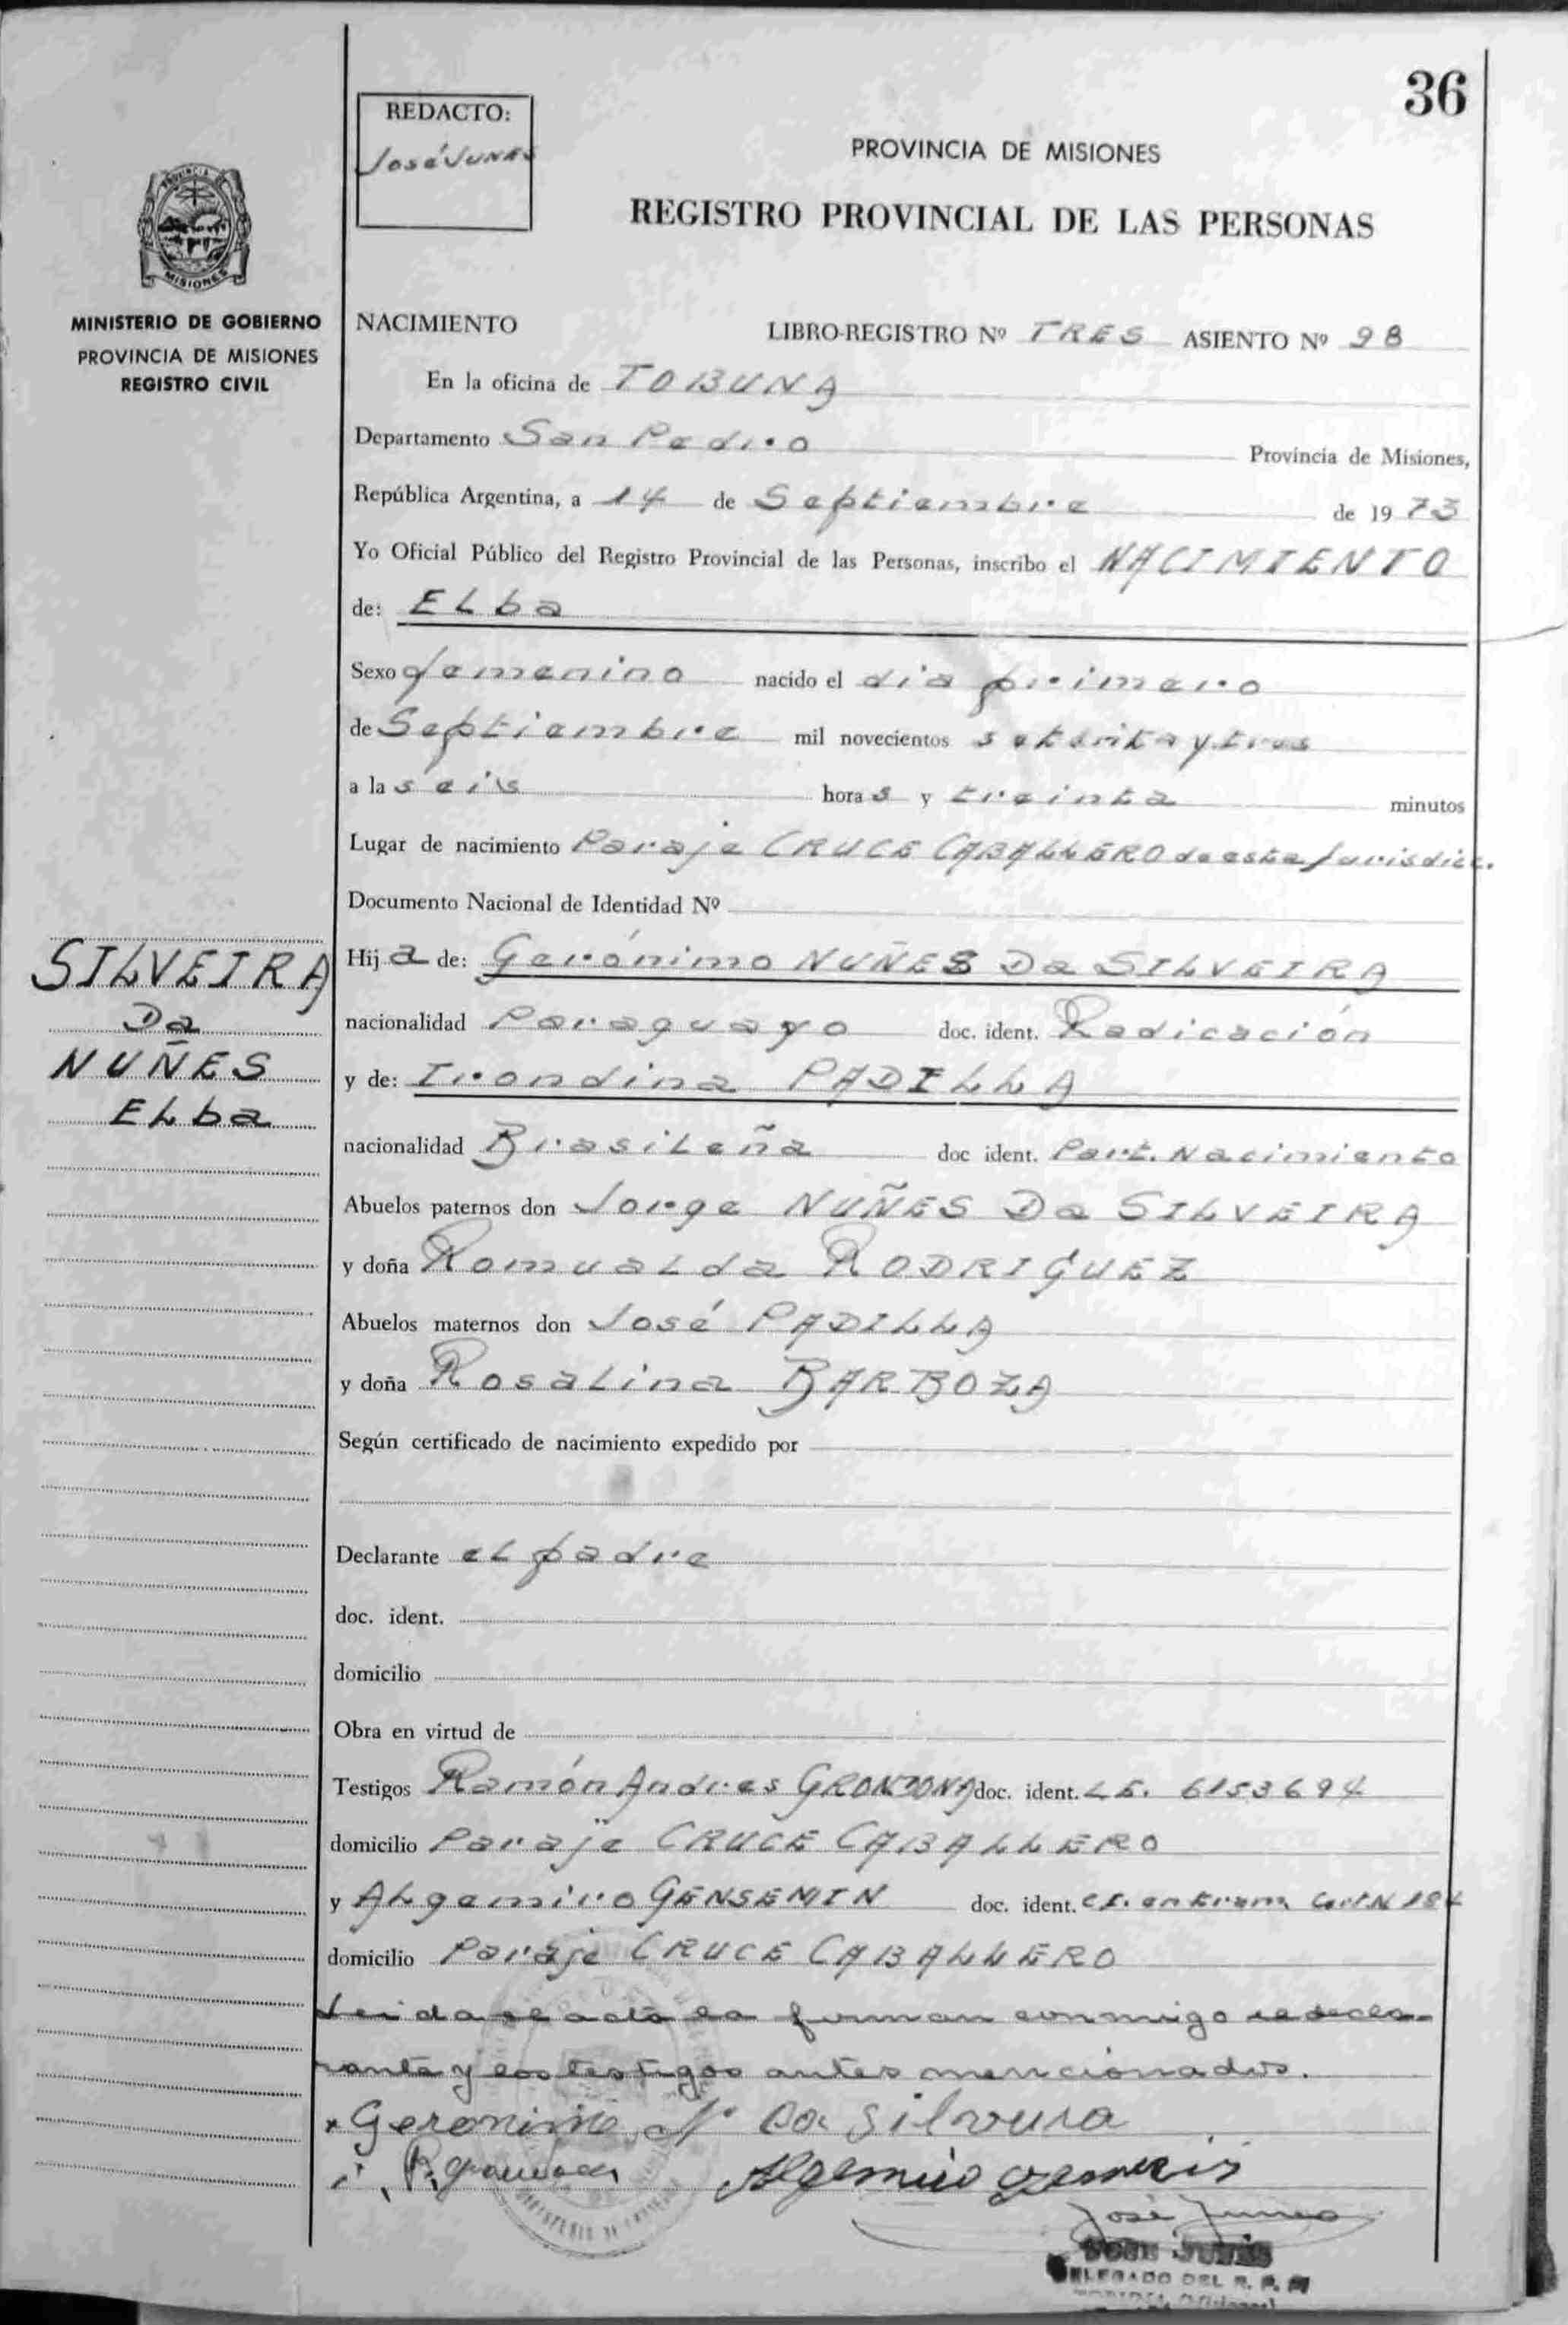 36
REDACTO:
José JUNES
PROVINCIA DE MISIONES
REGISTRO PROVINCIAL DE LAS PERSONAS
MISIONES
MINISTERIO DE GOBIERNO
PROVINCIA DE MISIONES
REGISTRO CIVIL
NACIMIENTO LIBRO-REGISTRO Nº TRES ASIENTO Nº 98
En la oficina de TOBUNA
Departamento San Pedro Provincia de Misiones,
República Argentina, a 14 de Septiembre de 1973
Yo Oficial Público del Registro Provincial de las Personas, inscribo el NACIMIENTO
de: ELba
Sexo femenino nacido el dia primero
de Septiembre mil novecientos setenta y tres
a la seis horas y treinta minutos
Lugar de nacimiento Paraje CRUCE CABALLERO de esta Jurisdicc.
Documento Nacional de Identidad Nº
SILVEIRA
Da
NUÑES
ELba
Hija de: Gerónimo NUÑES Da SILVEIRA
nacionalidad Paraguayo doc. ident. Radicación
y de: Irondina PADILLA
nacionalidad BrasiLeña doc ident. Part. Nacimiento
Abuelos paternos don Jorge NUÑES Da SILVEIRA
y doña RomuaLda RODRIGUEZ
Abuelos maternos don José PADILLA
y doña RosaLina BARBOZA
Según certificado de nacimiento expedido por
Declarante eL padre
doc. ident.
domicilio
Obra en virtud de
Testigos Ramón Andres GRONDONA doc. ident. L.E. 6153694
domicilio Paraje CRUCE CABALLERO
y ALgemiro GENSEMIN doc. ident. C.I. en tram. Cert. N 184
domicilio Paraje CRUCE CABALLERO
Leida el acta la firman conmigo el decla-
rante y los testigos antes mencionados.
Geronimo N. da Silveira
José Junes
JOSE JUNES
DELEGADO DEL R. P. P.